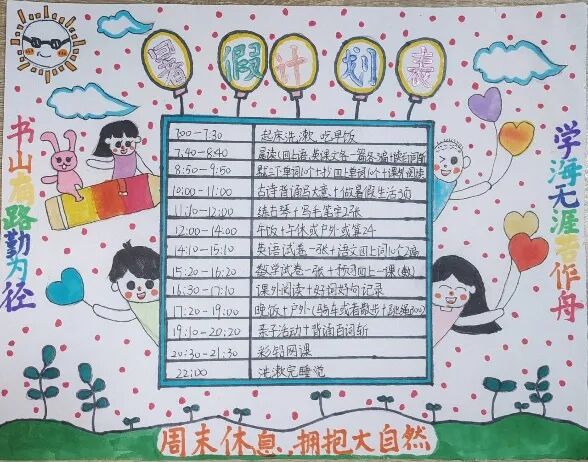 暑假计划表
书山有路勤为径
学海无涯苦作舟
7:00-7:30 起床洗漱 吃早饭
7:40-8:40 晨读(四上语、英课文各一篇
8:50-9:50 默三下单词10个+抄四上单词10个+课外阅读
10:00-11:00 古诗背诵写大意+1做暑假生活3页
11:10-12:00 练古琴+写毛笔字2张
12:00-14:00 午饭+午休或户外或算24
14:10-15:10 英语试卷一张+语文四上词10个2遍
15:20-16:20 数学试卷一张+预习四上一课(数)
16:30-17:10 课外阅读+好词好句记录
17:20-19:00 晚饭+户外(骑车或者散步+跳绳
19:10-20:20 亲子活动+背诵百词斩
20:30-21:30 彩铅网课
22:00 洗漱完睡觉
周末休息..拥抱大自然